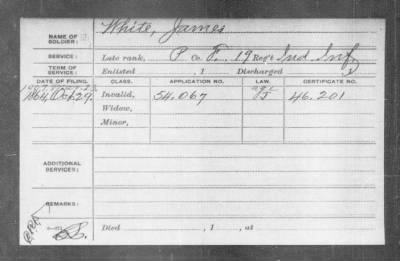 NAME OF SOLDIER: White, James
SERVICE: Late rank, P Co. F. 19 Reg't Ind Inf
TERM OF SERVICE: Enlisted , 1 Discharged , 1
DATE OF FILING. CLASS. APPLICATION NO. LAW. CERTIFICATE NO.
1864 Oct. 29. Invalid, 54.067 46.201
Widow,
Minor,
ADDITIONAL SERVICES:
REMARKS:
Died , 1 , at